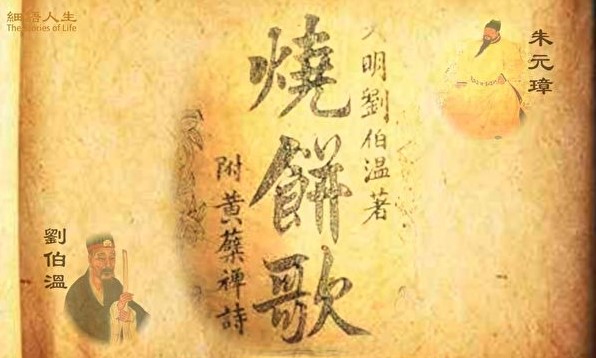 細語人生
The Stories of Life
朱元璋
明劉伯温著
燒餅歌
附黃蘗禪詩
劉伯溫